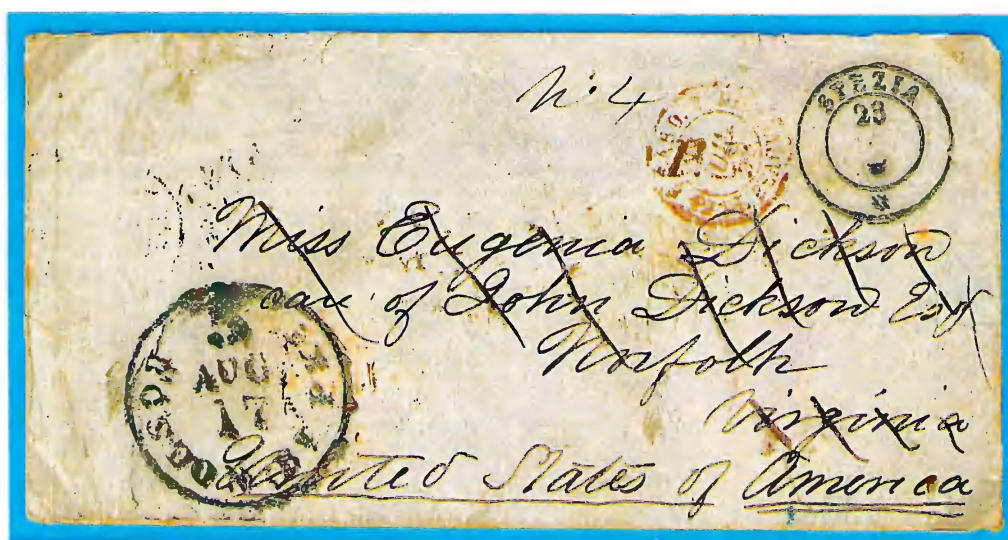 N. 4
SPEZIA
23
Miss Eugenia Dickson
care of John Dickson Esq
Norfolk
Virginia
United States of America
BOSTON
AUG
17